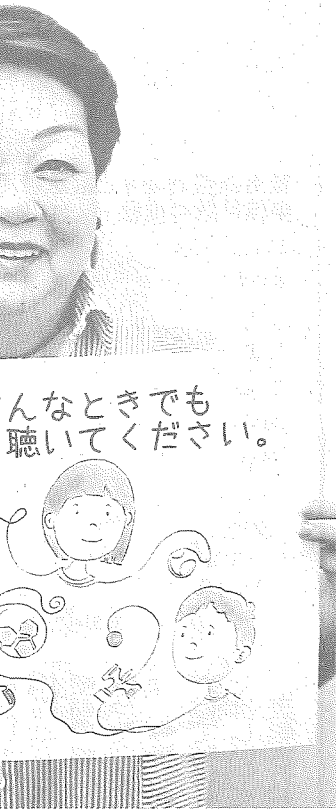 んなときでも
聴いてください。